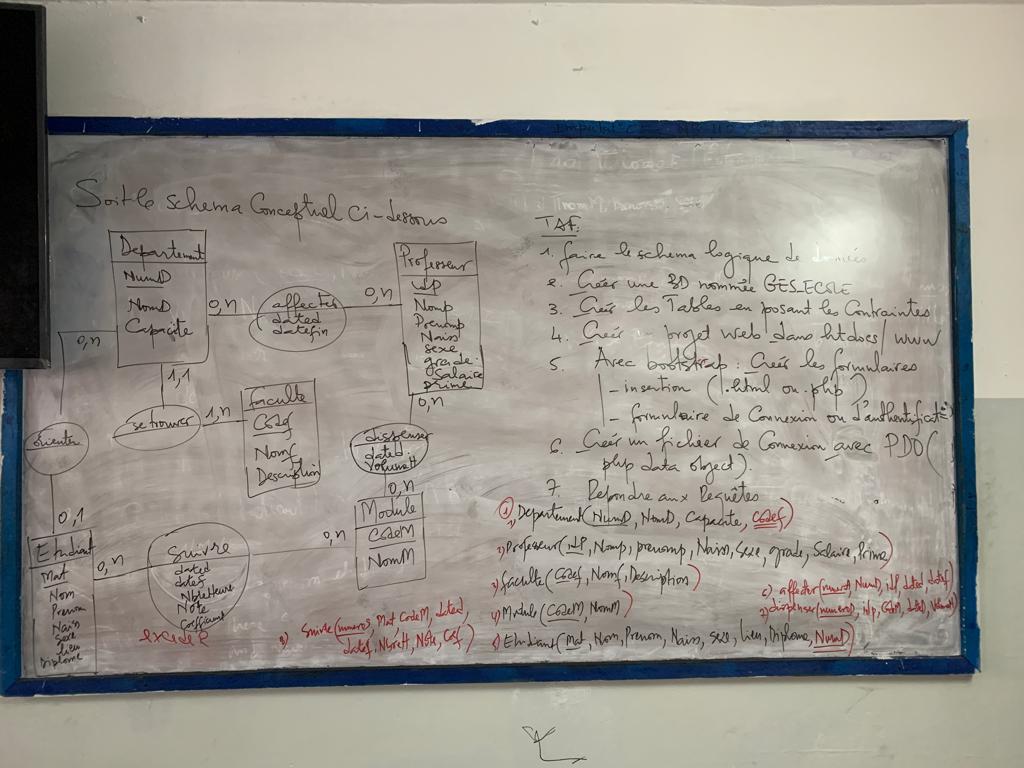 Soit le schema Conceptuel Ci-dessous
Departement
NumD
NomD
Capacite
0,n
affecter
dated
datefin
0,n
Professeur
idP
Nomp
Prenomp
Naiss
sexe
grade
Salaire
prime
0,n
0,n
1,1
se trouver
1,n
faculte
Codef
Nomf
Description
dispenser
dated
VolumeH
0,n
Module
CodeM
NomM
orienter
0,1
Etudiant
Mat
Nom
Prenom
Naiss
Sexe
Lieu
Diplome
0,n
Suivre
dated
datef
NbreHeure
Note
Coefficient
0,n
TAF:
1. faire le schema logique de données
2. Créer une BD nommée GES_ECOLE
3. Créer les Tables en posant les Contraintes
4. Créer projet web dans htdocs/www
5. Avec bootstrap: Créer les formulaires
- insertion (.html ou .php)
- formulaire de Connexion ou d'authentificat°
6. Créer un fichier de Connexion avec PDO (
php data object).
7. Repondre aux Requêtes
① 1) Departement (NumD, NomD, Capacite, Codef)
2) Professeur (idP, Nomp, prenomp, Naiss, Sexe, grade, Salaire, Prime)
3) faculte (Codef, Nomf, Description)
4) Module (CodeM, NomM)
5) Etudiant (Mat, Nom, Prenom, Naiss, sexe, Lieu, Diplome, NumD)
6) affecter (numero, NumD, idP, dated, datef)
7) dispenser (numero, idp, CodeM, dated, VolumeH)
8) Suivre (numeros, Mat, CodeM, dated,
datef, NbreH, Note, Coef)